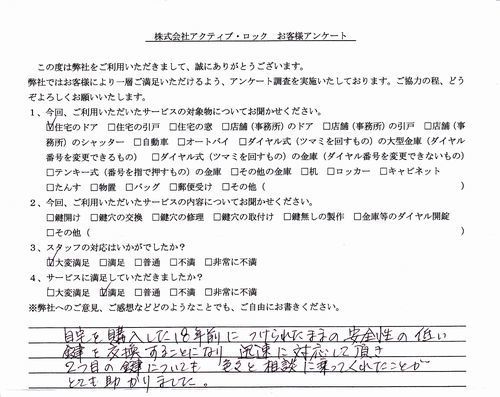 株式会社アクティブ・ロック　お客様アンケート
この度は弊社をご利用いただきまして、誠にありがとうございます。
弊社ではお客様により一層ご満足いただけるよう、アンケート調査を実施いたしております。ご協力の程、どう
ぞよろしくお願いいたします。
1、今回、ご利用いただいたサービスの対象物についてお聞かせください。
☑住宅のドア　□住宅の引戸　□住宅の窓　□店舗（事務所）のドア　□店舗（事務所）の引戸　□店舗（事
務所）のシャッター　□自動車　□オートバイ　□ダイヤル式（ツマミを回すもの）の大型金庫（ダイヤル
番号を変更できるもの）　□ダイヤル式（ツマミを回すもの）の金庫（ダイヤル番号を変更できないもの）
□テンキー式（番号を指で押すもの）の金庫　□その他の金庫　□机　□ロッカー　□キャビネット
□たんす　□物置　□バッグ　□郵便受け　□その他（　　　　　　　　）
2、今回、ご利用いただいたサービスの内容についてお聞かせください。
□鍵開け　□鍵穴の交換　□鍵穴の修理　□鍵穴の取付け　□鍵無しの製作　□金庫等のダイヤル開錠
□その他（　　　　　　　　）
3、スタッフの対応はいかがでしたか？
☑大変満足　□満足　□普通　□不満　□非常に不満
4、サービスに満足していただきましたか？
□大変満足　☑満足　□普通　□不満　□非常に不満
※弊社へのご意見、ご感想などどのようなことでも、ご自由にお書きください。
自宅を購入した18年前につけられたままの安全性の低い
鍵を交換することになり 迅速に対応して頂き
2つ目の鍵についても 色々と相談に乗ってくれたことが
とても助かりました。